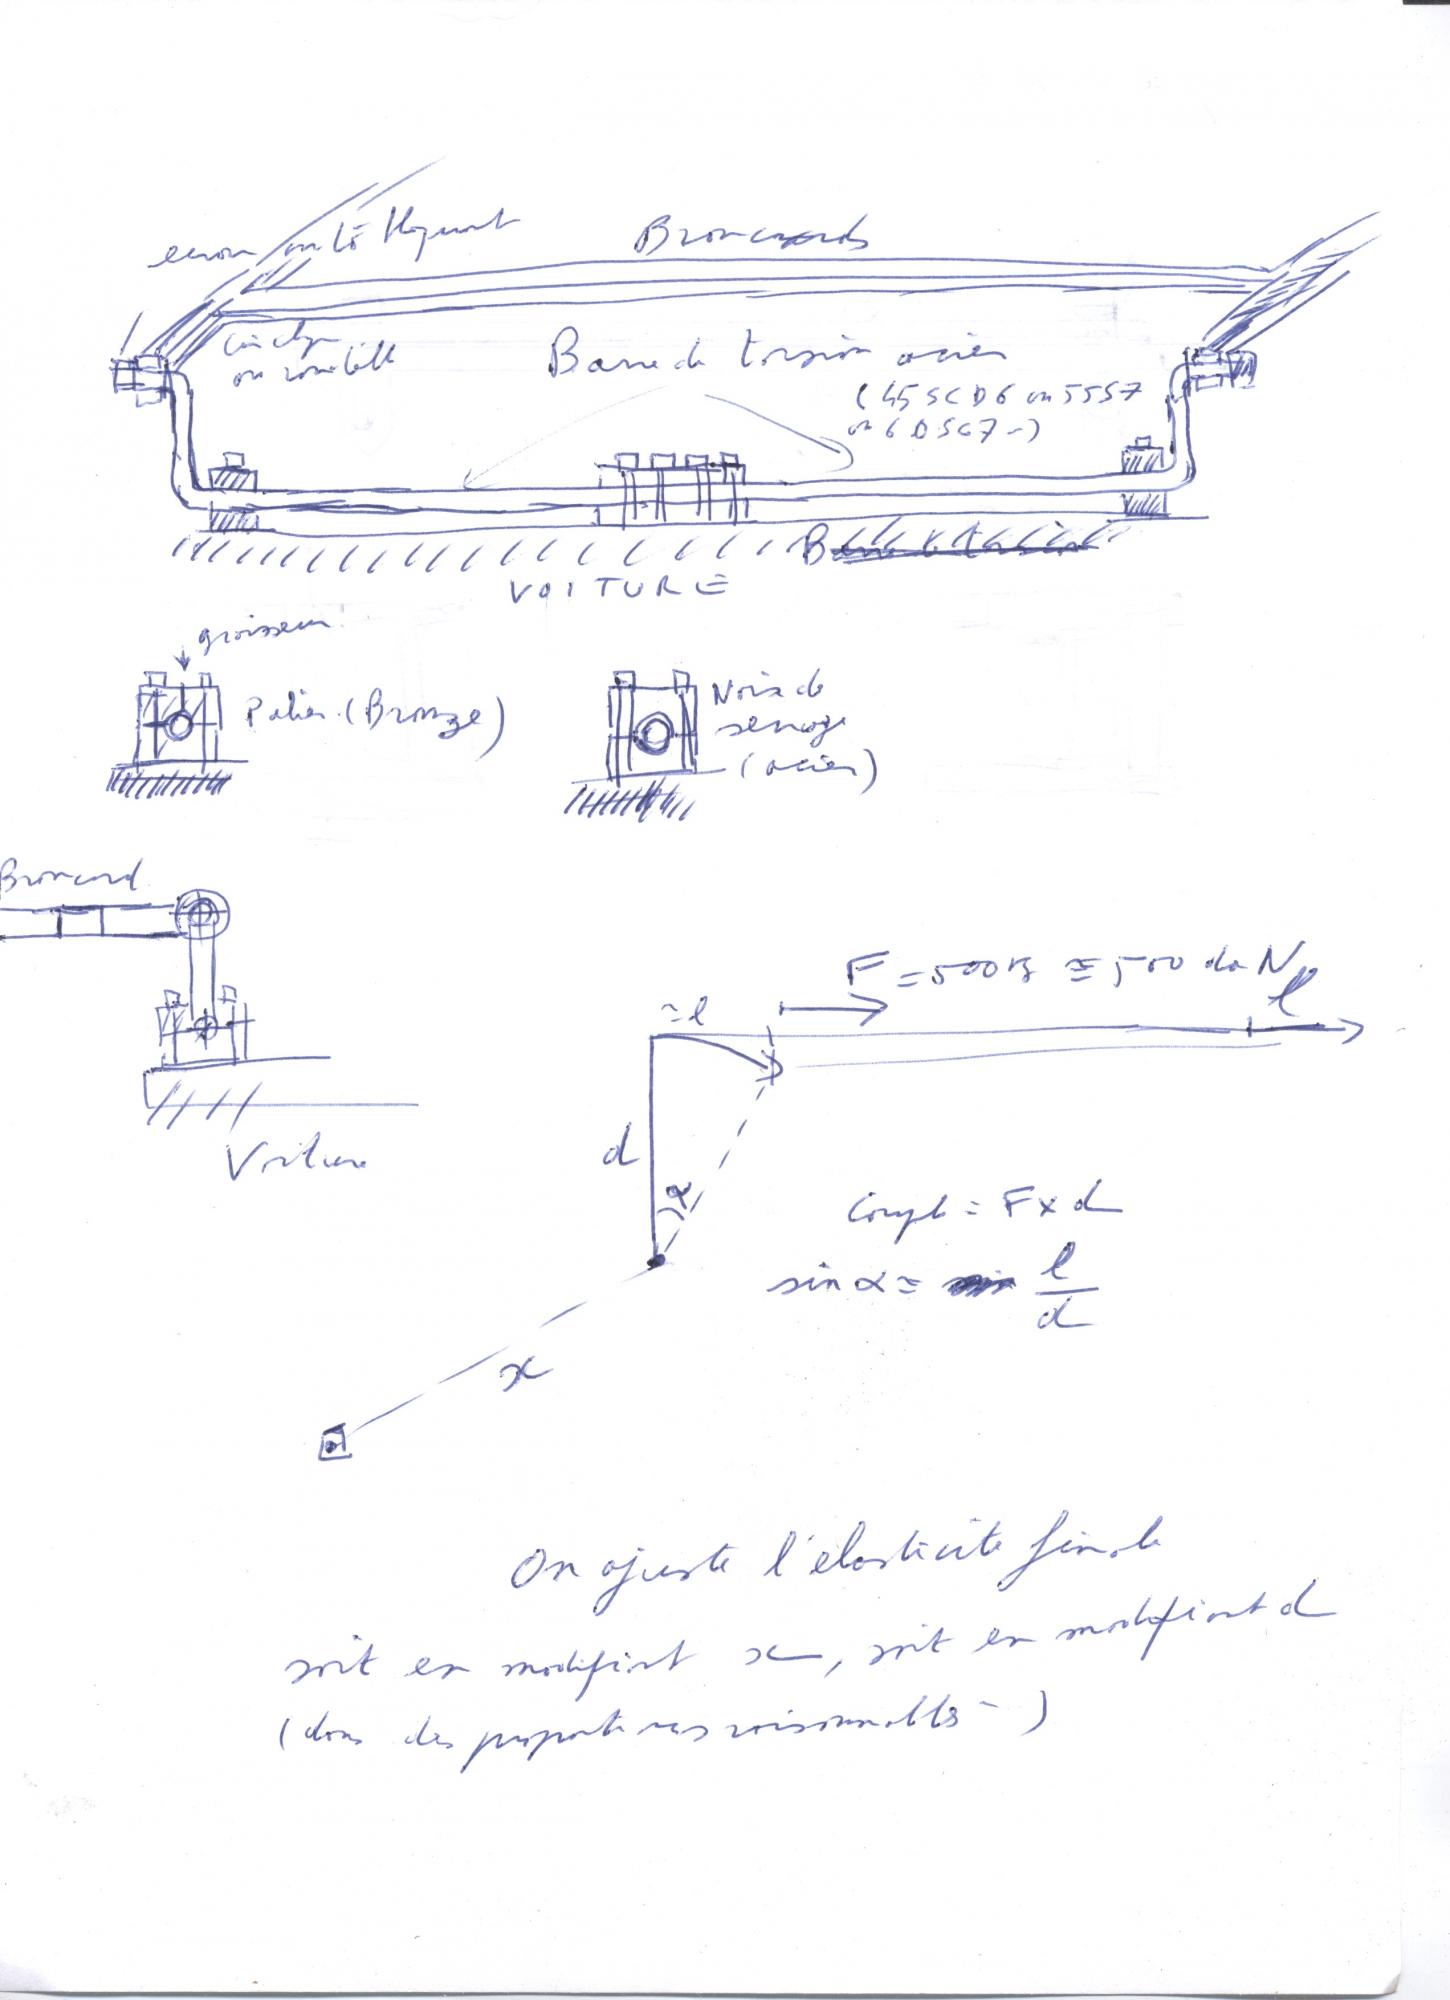 ecrou auto bloquant
Brancards
circlips
ou rondelle
Barre de torsion acier
(45 SCD6 ou 55S7
ou 60SC7 -)
VOITURE
graisseur
Palier (Bronze)
Noix de
serrage
(acier)
Brancard
Voiture
F = 500 kg ≅ 500 daN
l
≈ l
d
α
Couple = F x d
sin α ≈ l/d
x
On ajuste l'elasticité finale
soit en modifiant x, soit en modifiant d
(dans des proportions raisonnables -)